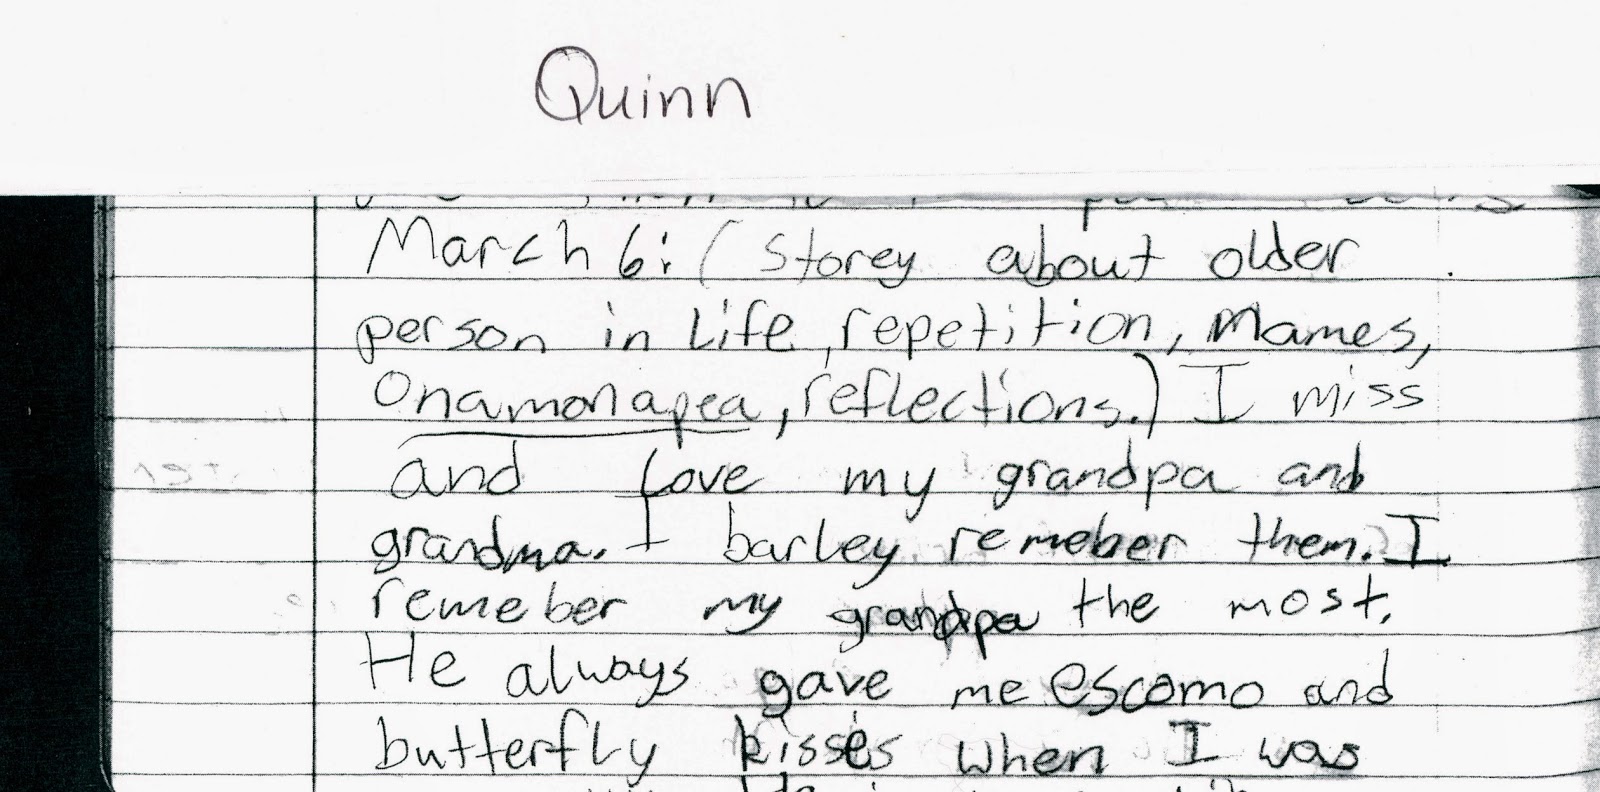 Quinn
March 6: (Storey about older
person in Life, repetition, Names,
Onamonapea, reflections.) I miss
and Love my grandpa and
grandma. I barley remeber them. I
remeber my grandpa the most.
He always gave me escomo and
butterfly kisses when I was